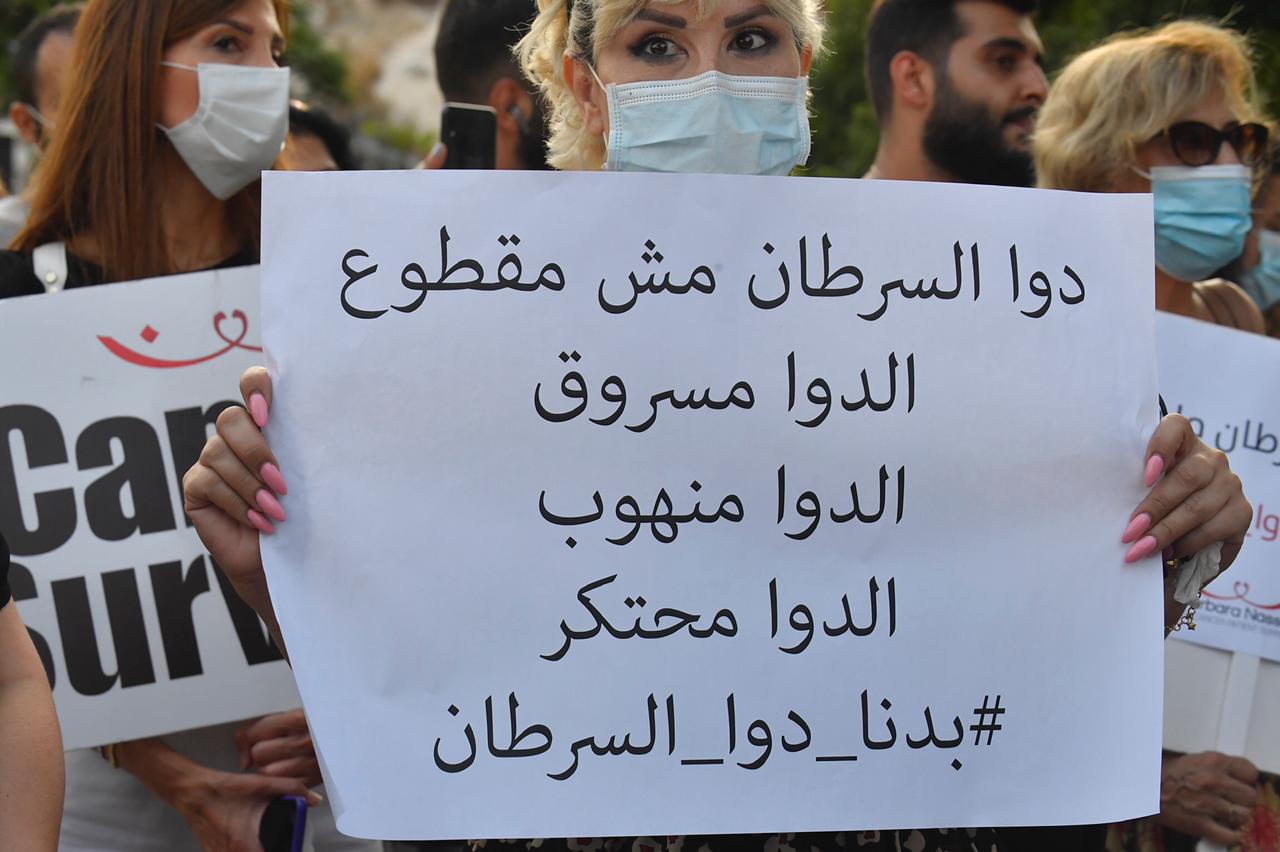 دوا السرطان مش مقطوع
الدوا مسروق
الدوا منهوب
الدوا محتكر
#بدنا_دوا_السرطان
Can
Surv